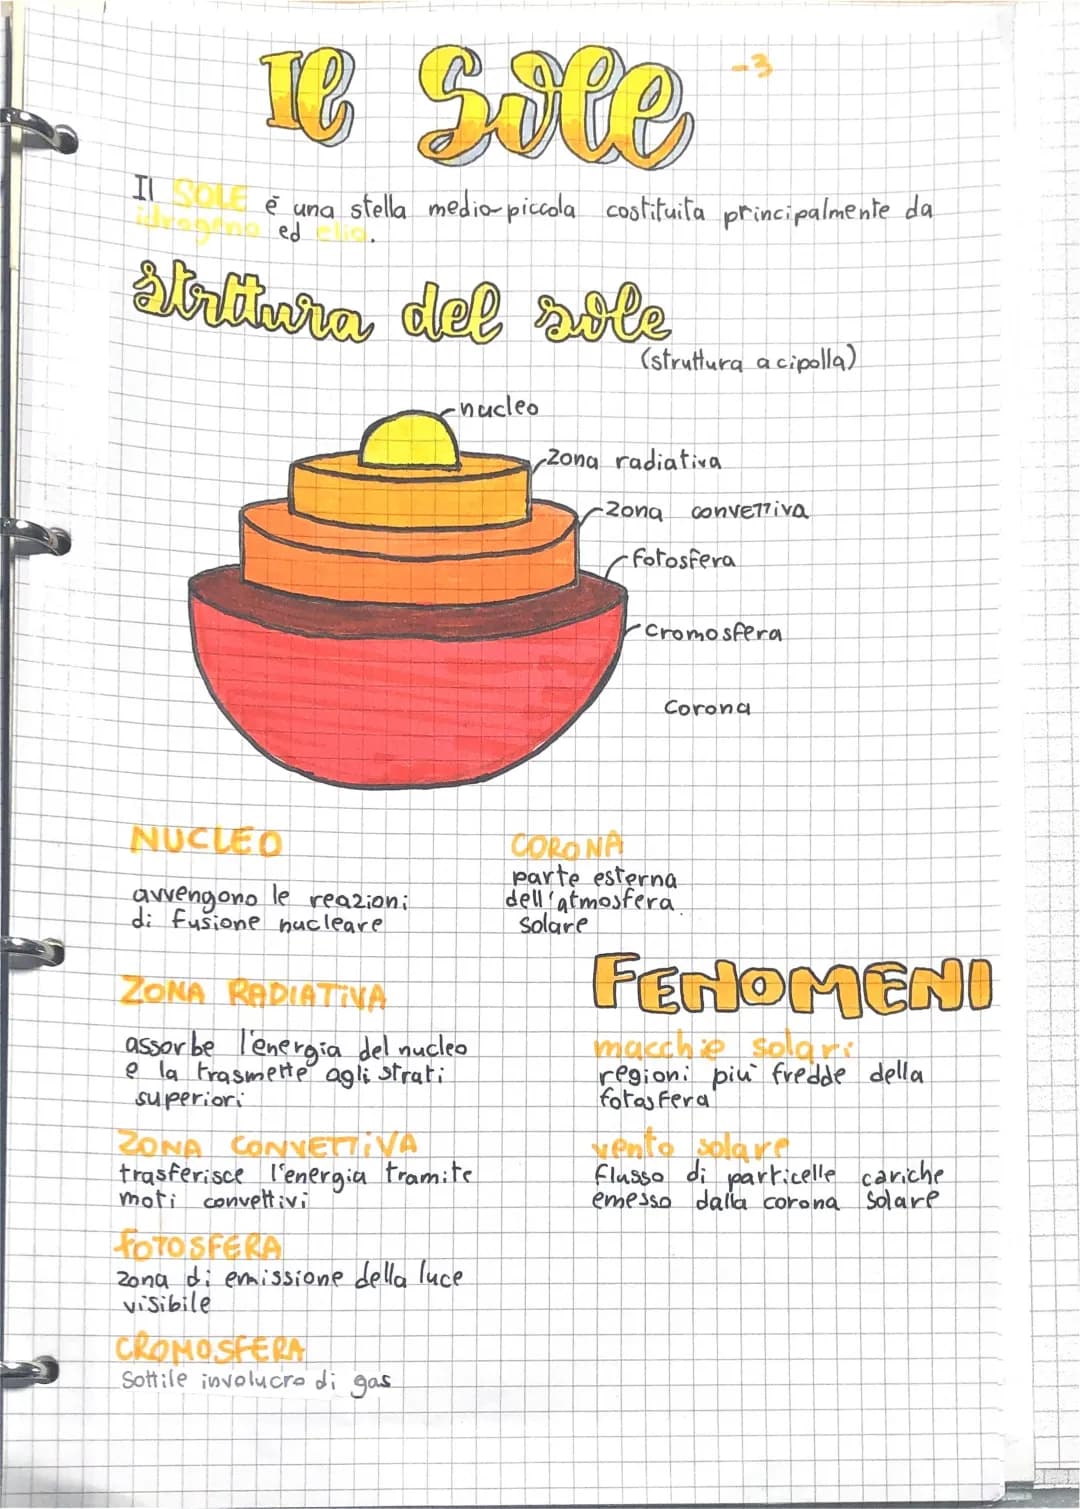 Il Sole
-3
Il SOLE è una stella medio-piccola costituita principalmente da
idrogeno ed elio.
strttura del sole
(struttura a cipolla)
nucleo
Zona radiativa
Zona convettiva
fotosfera
Cromosfera
Corona
NUCLEO
avvengono le reazioni
di fusione nucleare
ZONA RADIATIVA
assorbe l'energia del nucleo
e la trasmette agli strati
superiori
ZONA CONVETTIVA
trasferisce l'energia tramite
moti convettivi
FOTOSFERA
zona di emissione della luce
visibile
CROMOSFERA
Sottile involucro di gas
CORONA
parte esterna
dell'atmosfera
solare
FENOMENI
macchie solari
regioni più fredde della
fotosfera
vento solare
flusso di particelle cariche
emesso dalla corona solare